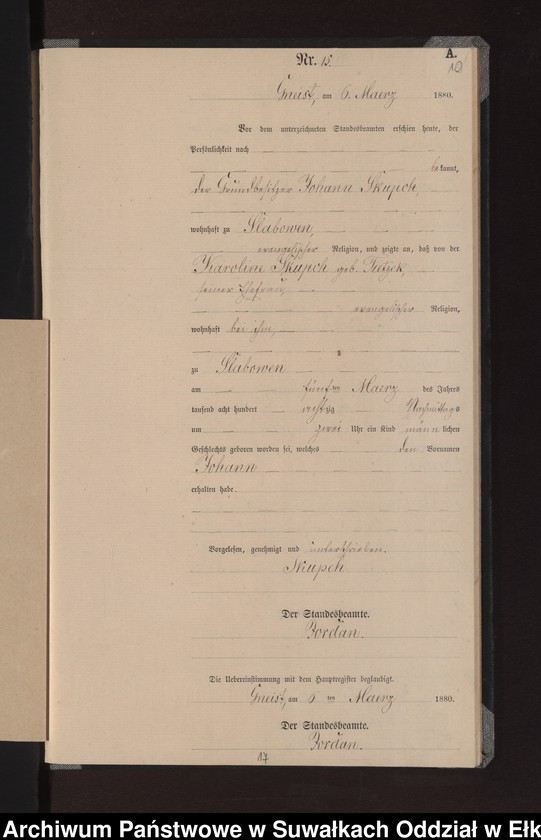 Nr. 15.
A.
10
Gneist, am 6. Maerz 1880.
Vor dem unterzeichneten Standesbeamten erschien heute, der
Persönlichkeit nach
bekannt,
der Grundbesitzer Johann Skupch,
wohnhaft zu Slabowen,
evangelischer Religion, und zeigte an, daß von der
Karoline Skupch geb.
seiner Ehefrau,
evangelischer Religion,
wohnhaft bei ihm,
zu Slabowen
am fünften Maerz des Jahres
tausend acht hundert achtzig Nachmittags
um zwei Uhr ein Kind männlichen
Geschlechts geboren worden sei, welches den Vornamen
Johann
erhalten habe.
Vorgelesen, genehmigt und unterschrieben.
Skupch
Der Standesbeamte.
Jordan.
Die Uebereinstimmung mit dem Hauptregister beglaubigt.
Gneist, am 6ten Maerz 1880.
Der Standesbeamte.
Jordan.
17
Archiwum Państwowe w Suwałkach Oddział w Ełk